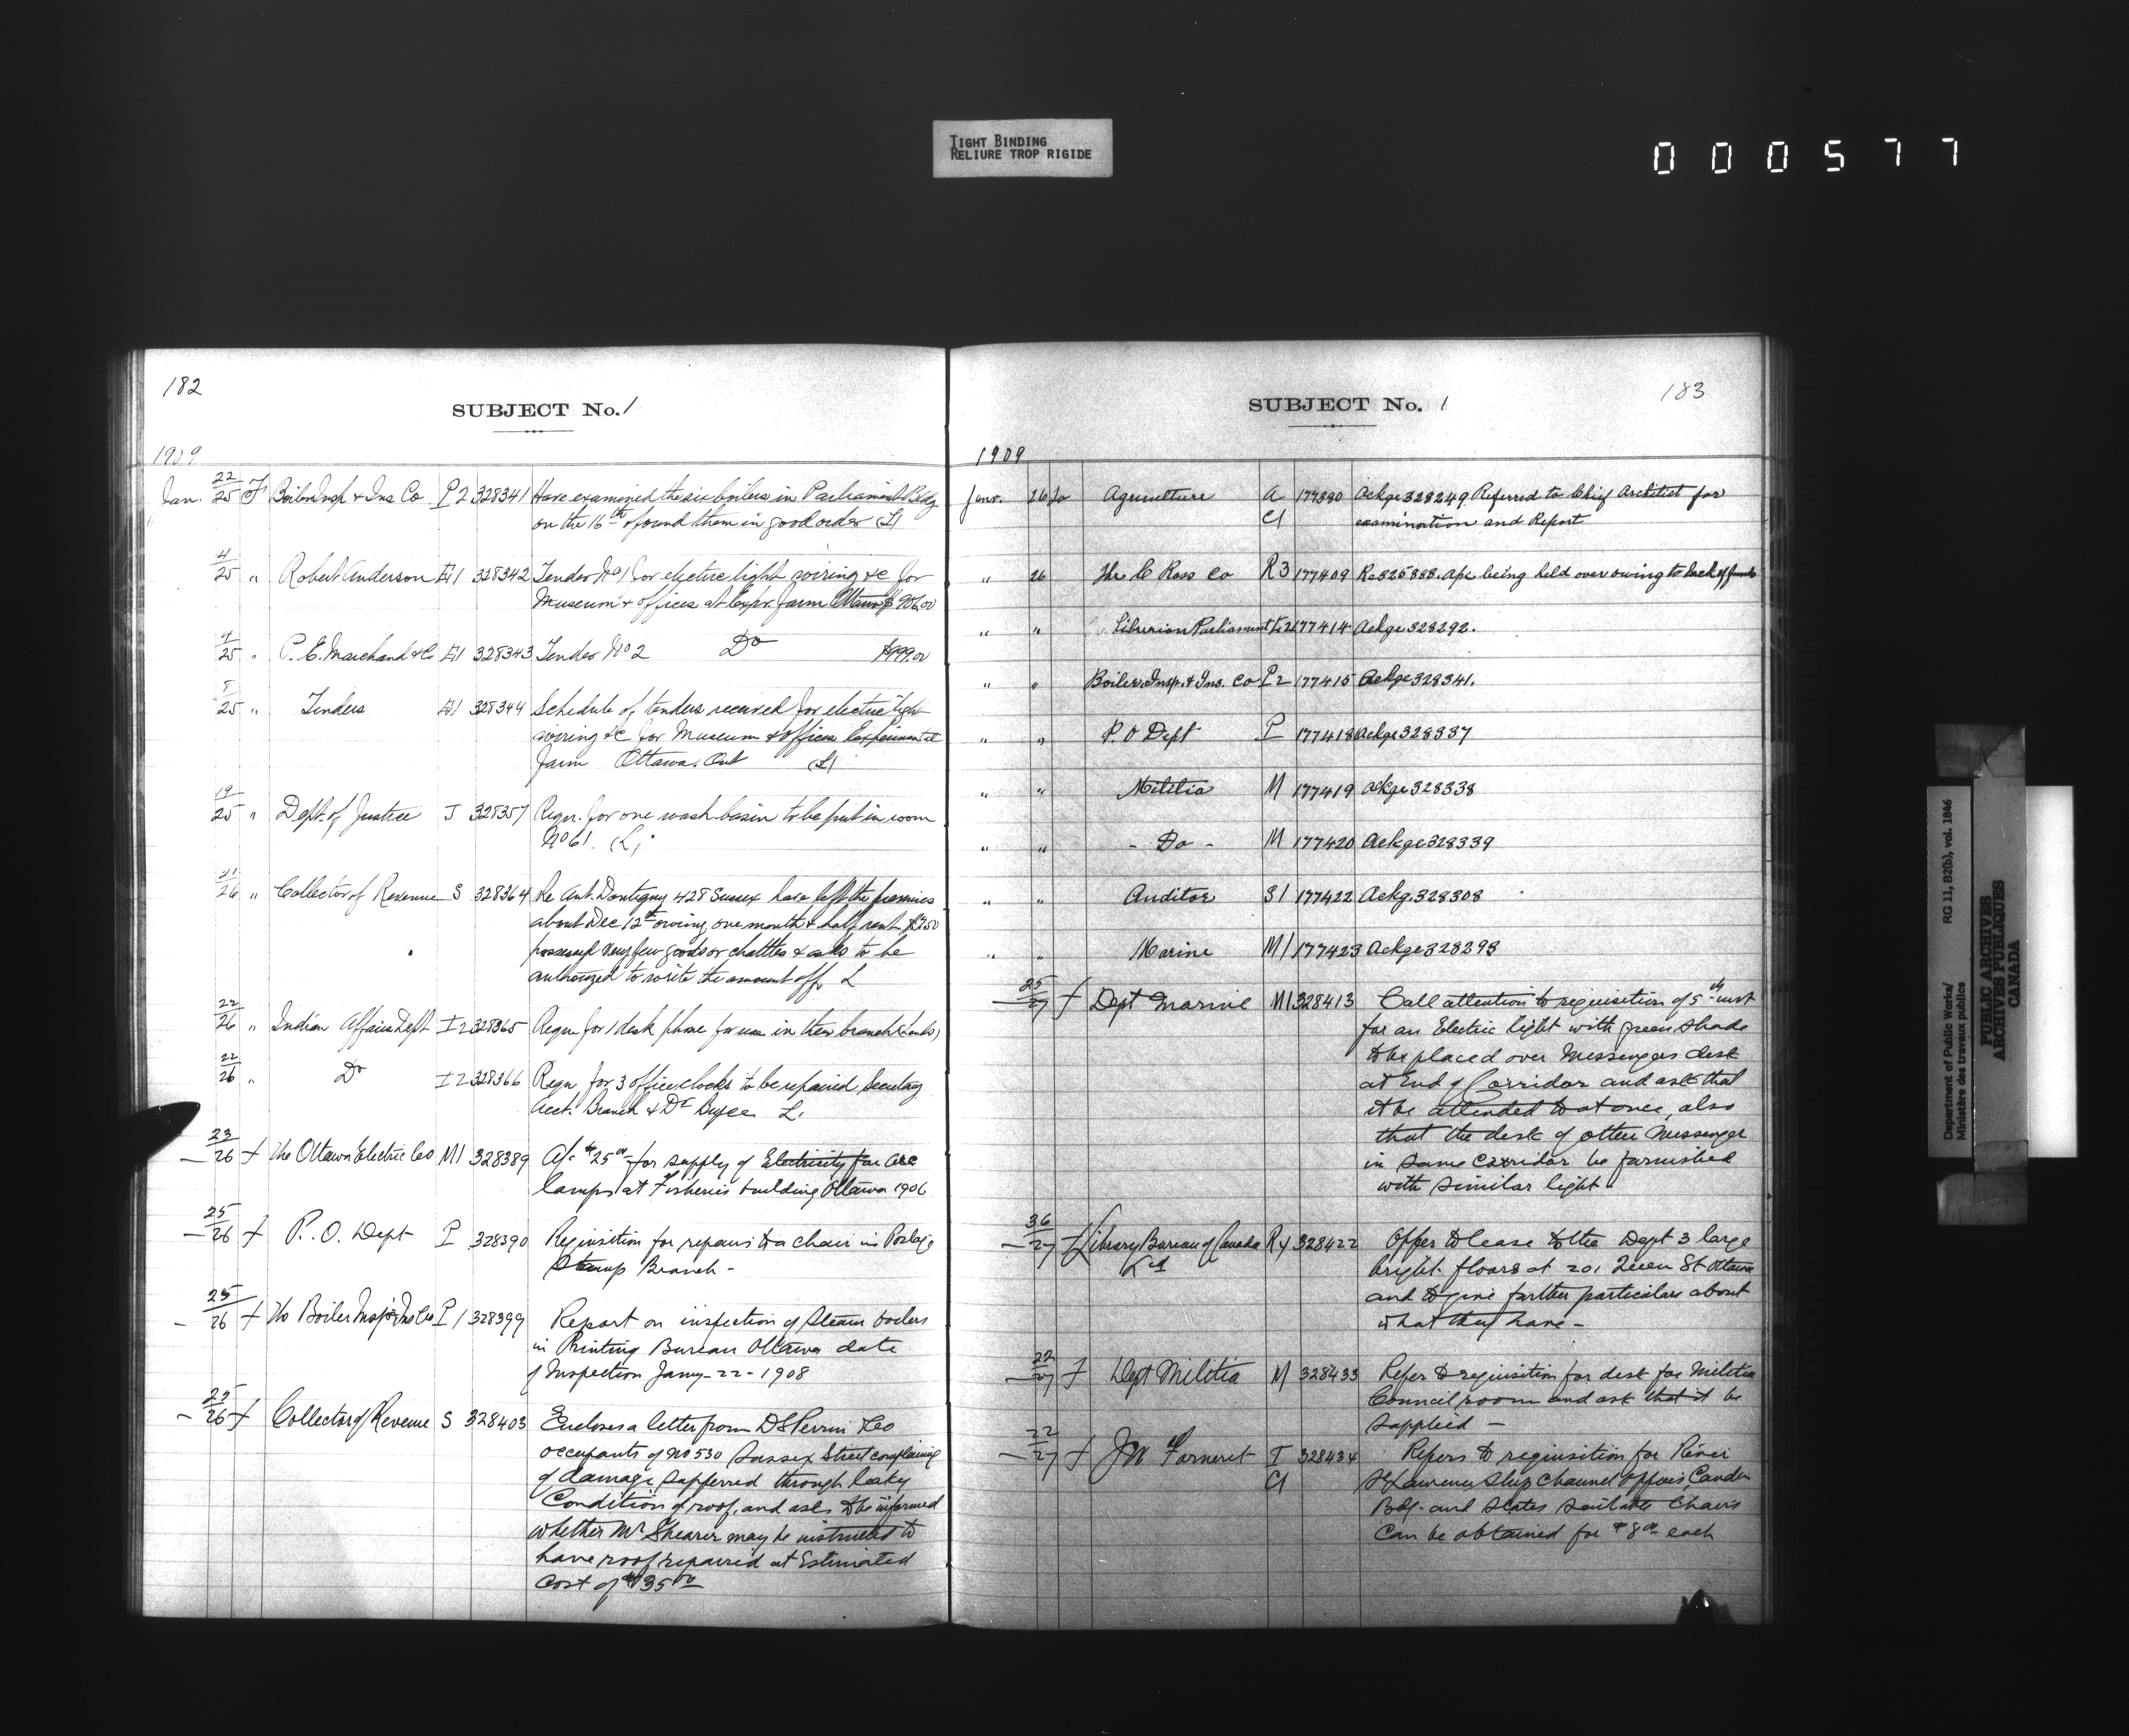 TIGHT BINDING
RELIURE TROP RIGIDE
000577
182
SUBJECT No. 1
1909
Jan. 22/25 F Boiler Insp & Ins Co P2 328341 Have examined the six boilers in Parliament Bldg
on the 16th & found them in good order (L)
4/25 " Robert Anderson E1 328342 Tender No 1 for electric light wiring &c for
Museum & offices at Expr. Farm Ottawa $906.00
4/25 " P. E. Marchand & Co E1 328343 Tender No 2 Do $999.00
25 " Tenders E1 328344 Schedule of tenders received for electric light
wiring &c for Museum & offices Experimental
Farm Ottawa. Ont (L)
19/25 " Dept. of Justice J 328357 Reqn. for one wash basin to be put in room
No 61. (L)
21/26 " Collector of Revenue S 328364 Re Ant. Dontigny 428 Sussex have left the premises
about Dec 12th owing one month & half rent
possessed very few goods or chattles & asks to be
authorized to write the amount off. L
22/26 " Indian Affairs Dept I2 328365 Reqn for 1 desk phone for use in their branch
22/26 " Do I2 328366 Reqn for 3 office clocks to be repaired Secretary
Acct. Branch & Dr Bryce L.
23/26 f The Ottawa Electric Co M1 328389 A/c $25.00 for supply of Electricity for arc
lamps at Fisheries building Ottawa 1906
25/26 f P. O. Dept P 328390 Requisition for repairs to a chair in Postage
Stamp Branch -
25/26 f The Boiler Insp & Ins Co P1 328399 Report on inspection of Steam boilers
in Printing Bureau Ottawa date
of Inspection Jany - 22 - 1908
25/26 f Collector of Revenue S 328403 Encloses a letter from D S Perrin & Co
occupants of No 530 Sussex Street complaining
of damage sufferred through leaky
Condition of roof, and asks to be informed
whether Mr Shearer may be instructed to
have roof repaired at Estimated
Cost of $35.00
183
SUBJECT No. 1
1909
Janv. 26 To Agriculture A 177380 Ackge 328249. Referred to Chief Architect for
C1 examination and Report
" 26 The C Ross Co R3 177409 Re 325888. A/c being held over owing to lack of funds
" " Librarian Parliament L2 177414 Ackge 328292.
" " Boiler Insp. & Ins. Co P2 177415 Ackge 328341.
" " P. O Dept P 177418 Ackge 328337
" " Militia M 177419 Ackge 328338
" " - Do - M 177420 Ackge 328339
" " Auditor S1 177422 Ackg. 328308
" " Marine M1 177423 Ackge 328293
25/27 f Dept Marine M1 328413 Call attention to requisition of 5th inst
for an Electric light with green shade
to be placed over Messengers desk
at End of Corridor and ask that
it be attended to at once, also
that the desk of other Messenger
in same Corridor be furnished
with similar light
26/27 f Library Bureau of Canada R4 328422 Offer to lease to the Dept 3 large
Ltd bright floors at 201 Queen St Ottawa
and to give further particulars about
what they have -
22/27 f Dept Militia M 328433 Refer to requisition for desk for Militia
Council room and ask that it be
supplied -
22/27 f J W Forneret I 328434 Refers to requisition for River
C1 St Lawrence Ship Channel offices, Canada
Bdg. and states suitable Chairs
can be obtained for $8.00 each
Department of Public Works/
Ministère des travaux publics
RG 11, B2(b), vol. 1846
PUBLIC ARCHIVES
ARCHIVES PUBLIQUES
CANADA